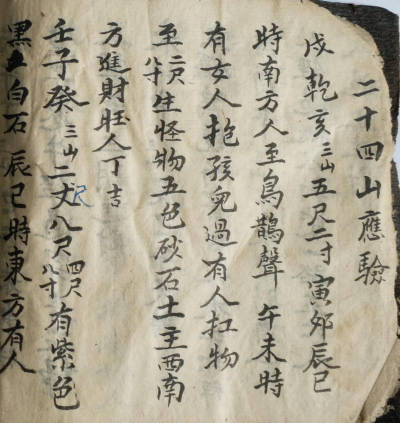 二十四山應驗
戌乾亥三山五尺二寸寅卯辰巳
時南方人至鳥鵲聲午未時
有女人抱孩兒過有人扛物
至二尺八寸生怪物五色砂石土主西南
方進財旺人丁吉
壬子癸三山二丈八尺四尺八寸有紫色
黑白石辰巳時東方有人